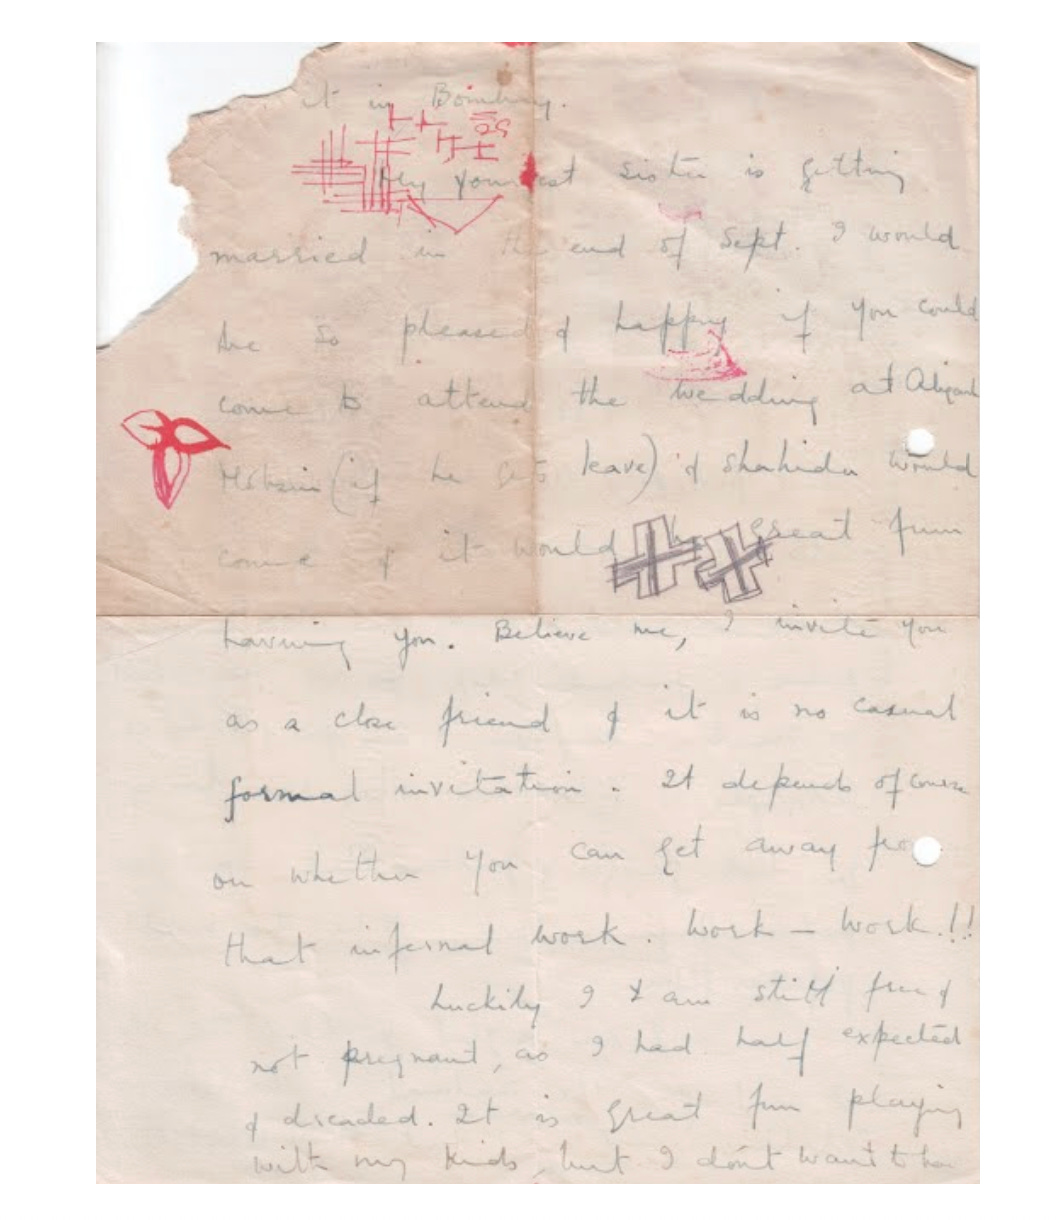 it in Bombay.
My youngest sister is getting
married in the end of Sept. I would
be so pleased & happy if you could
come to attend the wedding at Aligarh
Mohsin (if he gets leave) & Shahida would
come & it would be great fun
having you. Believe me, I invite you
as a close friend & it is no casual
formal invitation. It depends of course
on whether you can get away from
that infernal work. Work — work!!
Luckily I am still free &
not pregnant, as I had half expected
& dreaded. It is great fun playing
with my kids, but I don't want to ha